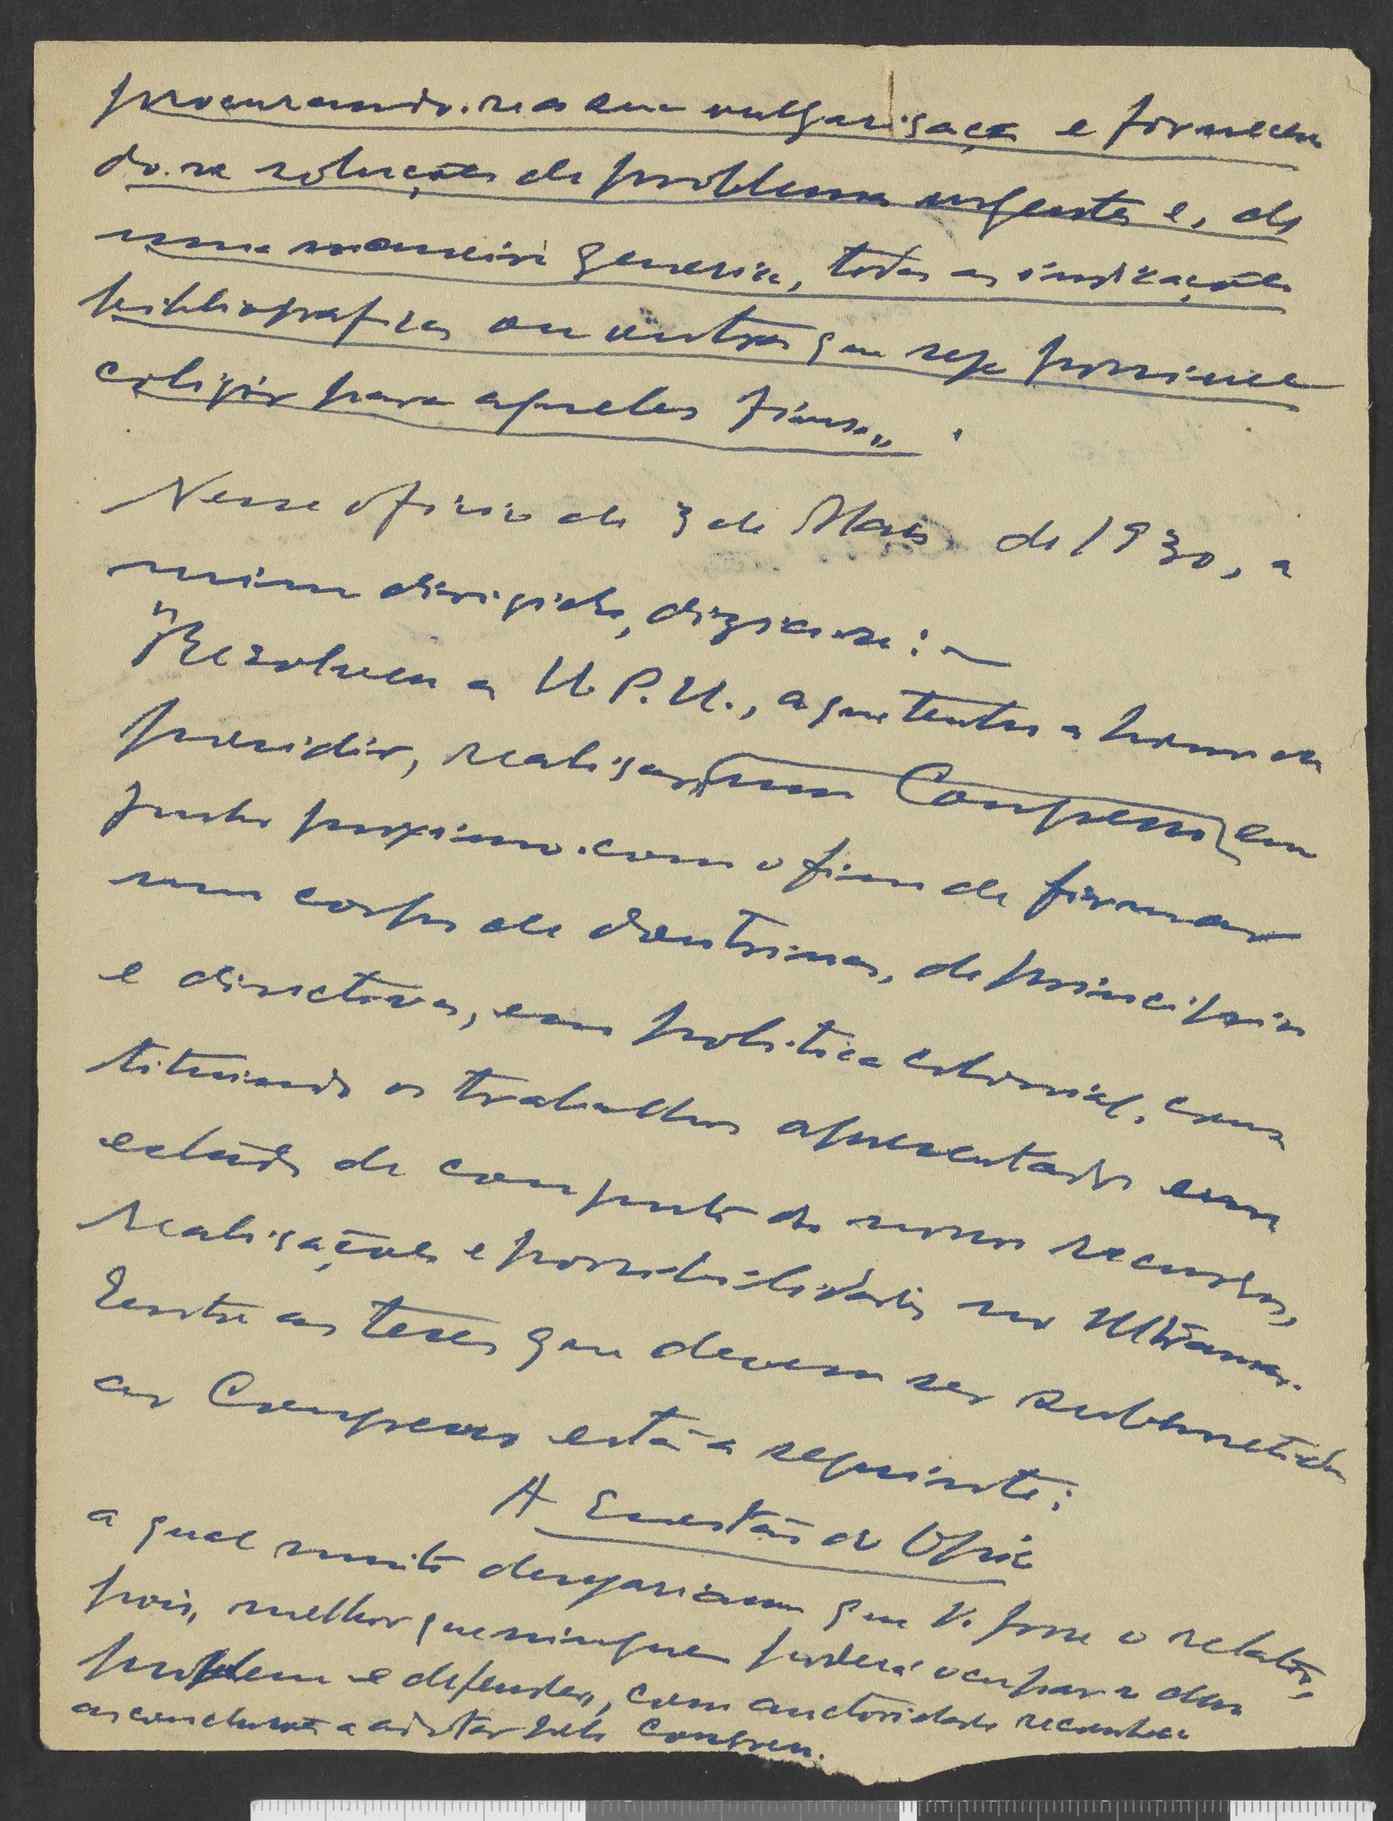 procurando-se a sua vulgarisação e fornecen
do-se soluções de problemas urgentes e, de
uma maneira generica, todas as indicações
bibliograficas ou outras que seja possivel
coligir para aqueles fins„.
Nesse oficio de 3 de Maio de 1930, a
mim dirigido, dizia-se:—
"Resolveu a U.P.U., a que tenho a honra de
presidir, realisar um Congresso em
Junho proximo. com o fim de firmar
um corpo de doutrinas, de principios
e directivas, em politica colonial, cons
tituindo os trabalhos apresentados um
estudo de conjunto dos nossos recursos,
realisações e possibilidades no Ultramar.
Entre as teses que devem ser submetidas
ao Congresso está a seguinte:
A Questão do Opio
a qual muito desejariam que V. fosse o relator,
pois, melhor que ninguem poderá ocupar-se do
problema e defender, com auctoridade reconhecida
as conclusões a adotar pelo Congresso.